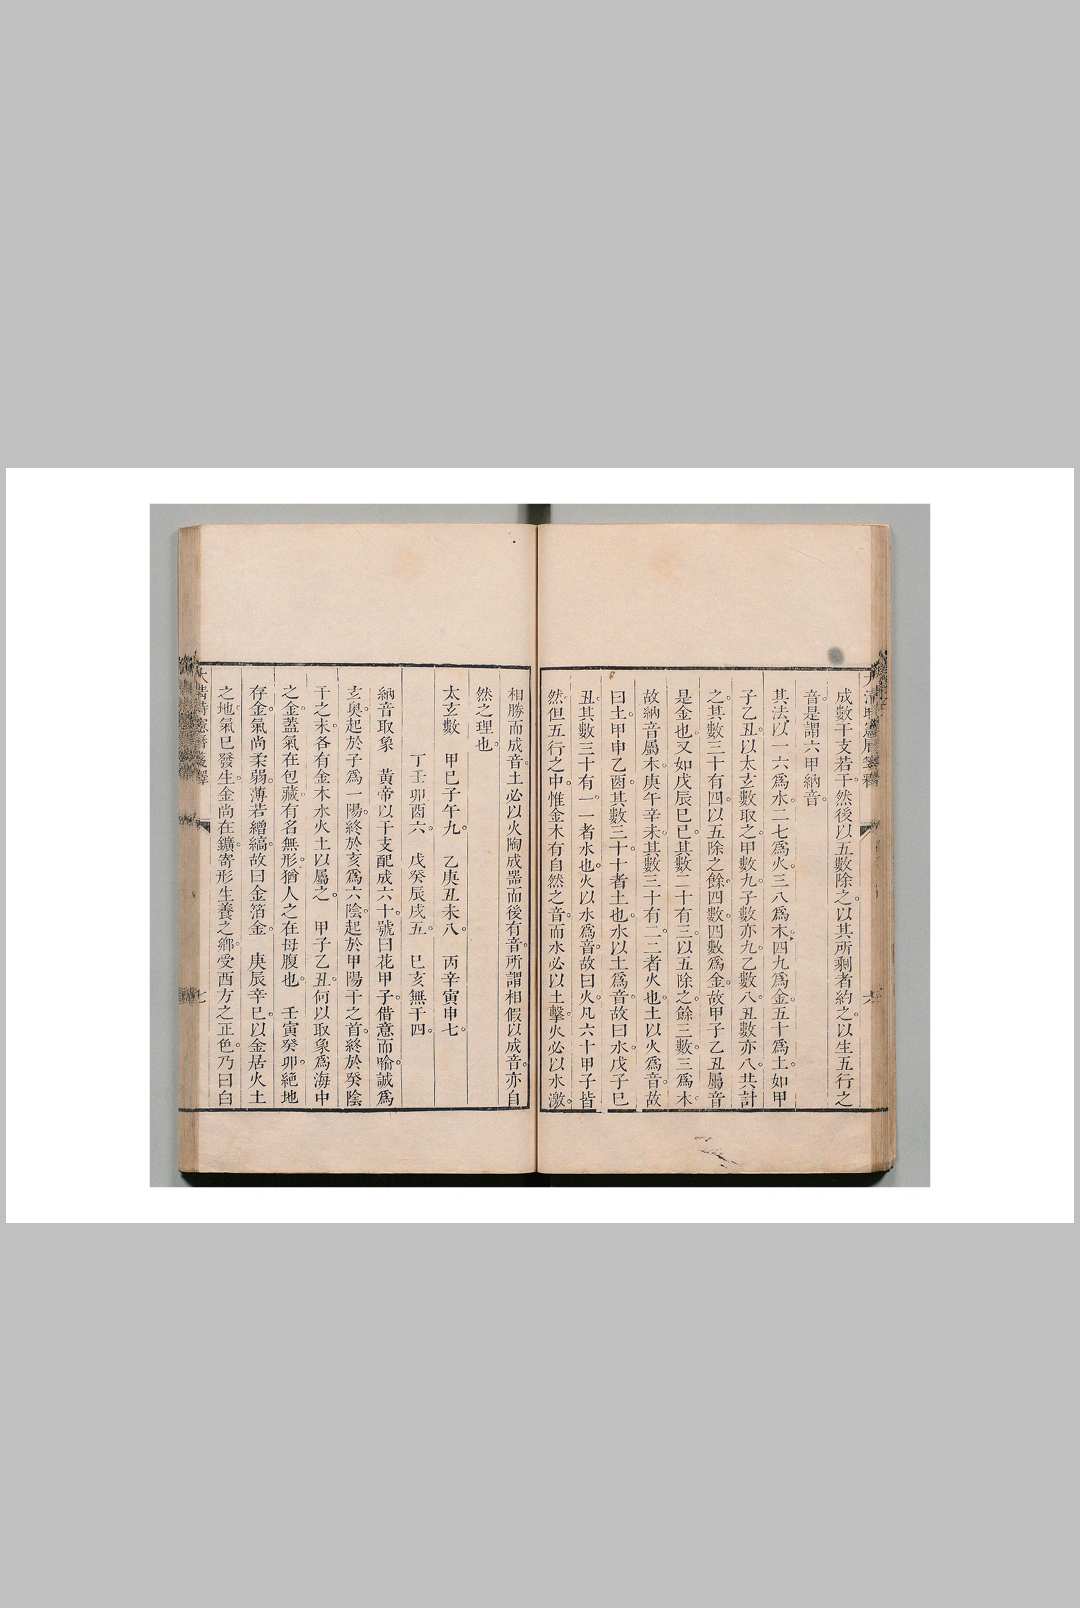 成數干支若干。然後以五數除之。以其所剩者約之。以生五行之
音。是謂六甲納音。
其法以一六爲水。二七爲火。三八爲木。四九爲金。五十爲土。如甲
子乙丑。以太玄數取之。甲數九。子數亦九。乙數八。丑數亦八。共計
之。其數三十有四。以五除之。餘四數。四數爲金。故甲子乙丑屬音
是金也。又如戊辰己巳。其數二十有三。以五除之。餘三數。三爲木。
故納音屬木。庚午辛未。其數三十有二。二者火也。土以火爲音。故
曰土。甲申乙酉。其數三十。十者土也。水以土爲音。故曰水。戊子己
丑。其數三十有一。一者水也。火以水爲音。故曰火。凡六十甲子皆
然。但五行之中。惟金木有自然之音。而水必以土擊。火必以水激。
相勝而成音。土必以火陶成器而後有音。所謂相假以成音。亦自
然之理也。
太玄數 甲己子午九。 乙庚丑未八。 丙辛寅申七。
丁壬卯酉六。 戊癸辰戌五。 巳亥無干四。
納音取象 黃帝以干支配成六十。號曰花甲子。借意而喻。誠爲
玄奧。起於子爲一陽。終於亥爲六陰。起於甲陽干之首。終於癸陰
干之末。各有金木水火土以屬之。 甲子乙丑。何以取象爲海中
之金。蓋氣在包藏。有名無形。猶人之在母腹也。 壬寅癸卯。絕地
存金。氣尚柔弱。薄若繒縞。故曰金箔金。 庚辰辛巳。以金居火土
之地。氣已發生。金尚在鑛。寄形生養之鄉。受西方之正色。乃曰白